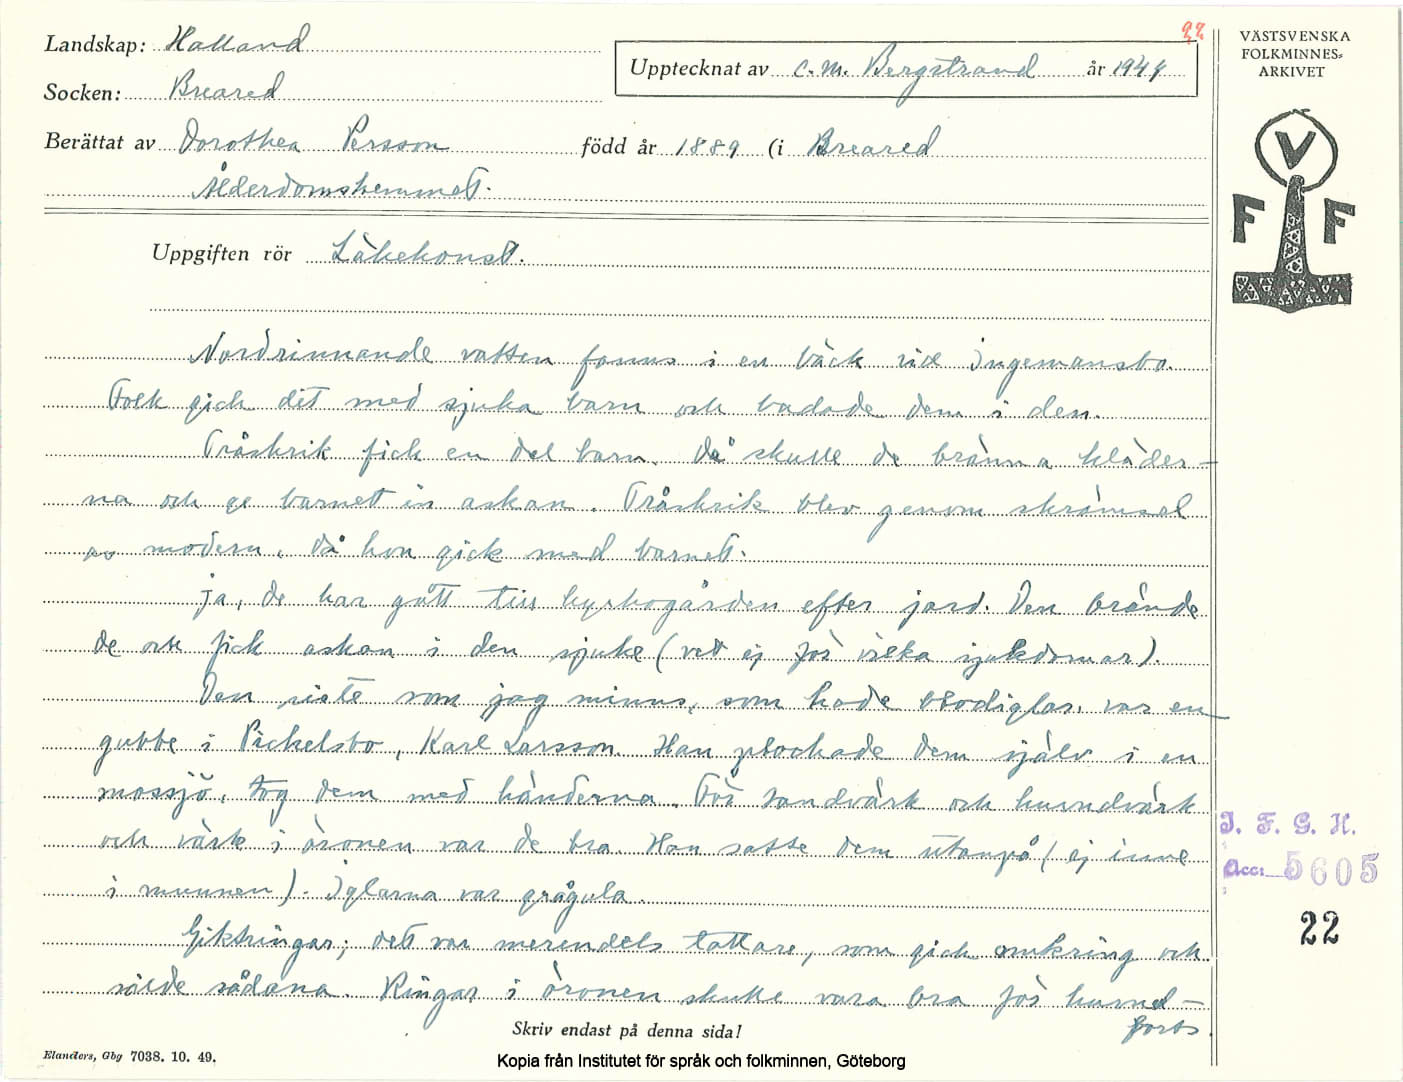 22
Landskap: Halland
Upptecknat av C. M. Bergstrand år 1949
VÄSTSVENSKA
FOLKMINNES-
ARKIVET
Socken: Breared
Berättat av Dorothea Persson född år 1889 (i Breared
Ålderdomshemmet.
V
F F
Uppgiften rör Läkekonst.
Nordrinnande vatten fanns i en bäck vid Ingemansbo.
Folk gick dit med sjuka barn och badade dem i den.
Tråskrik fick en del barn. Då skulle de bränna kläder-
na och ge barnet in askan. Tråskrik blev genom skrämsel
av modern, då hon gick med barnet.
Ja, de har gått till kyrkogården efter jord. Den brände
de och fick askan i den sjuke (vet ej för vilka sjukdomar).
Den siste som jag minns, som hade blodiglar, var en
gubbe i Pickelsbo, Karl Larsson. Han plockade dem själv i en
mossjö, tog dem med händerna. För tandvärk och huvudvärk
och värk i öronen var de bra. Han satte dem utanpå (ej inne
i munnen). Iglarna var grågula.
Giktringar; det var merendels tattare, som gick omkring och
sålde sådana. Ringar i öronen skulle vara bra för huvud-
forts.
I. F. G. H.
Acc: 5605
22
Skriv endast på denna sida!
Elanders, Gbg 7038. 10. 49.
Kopia från Institutet för språk och folkminnen, Göteborg